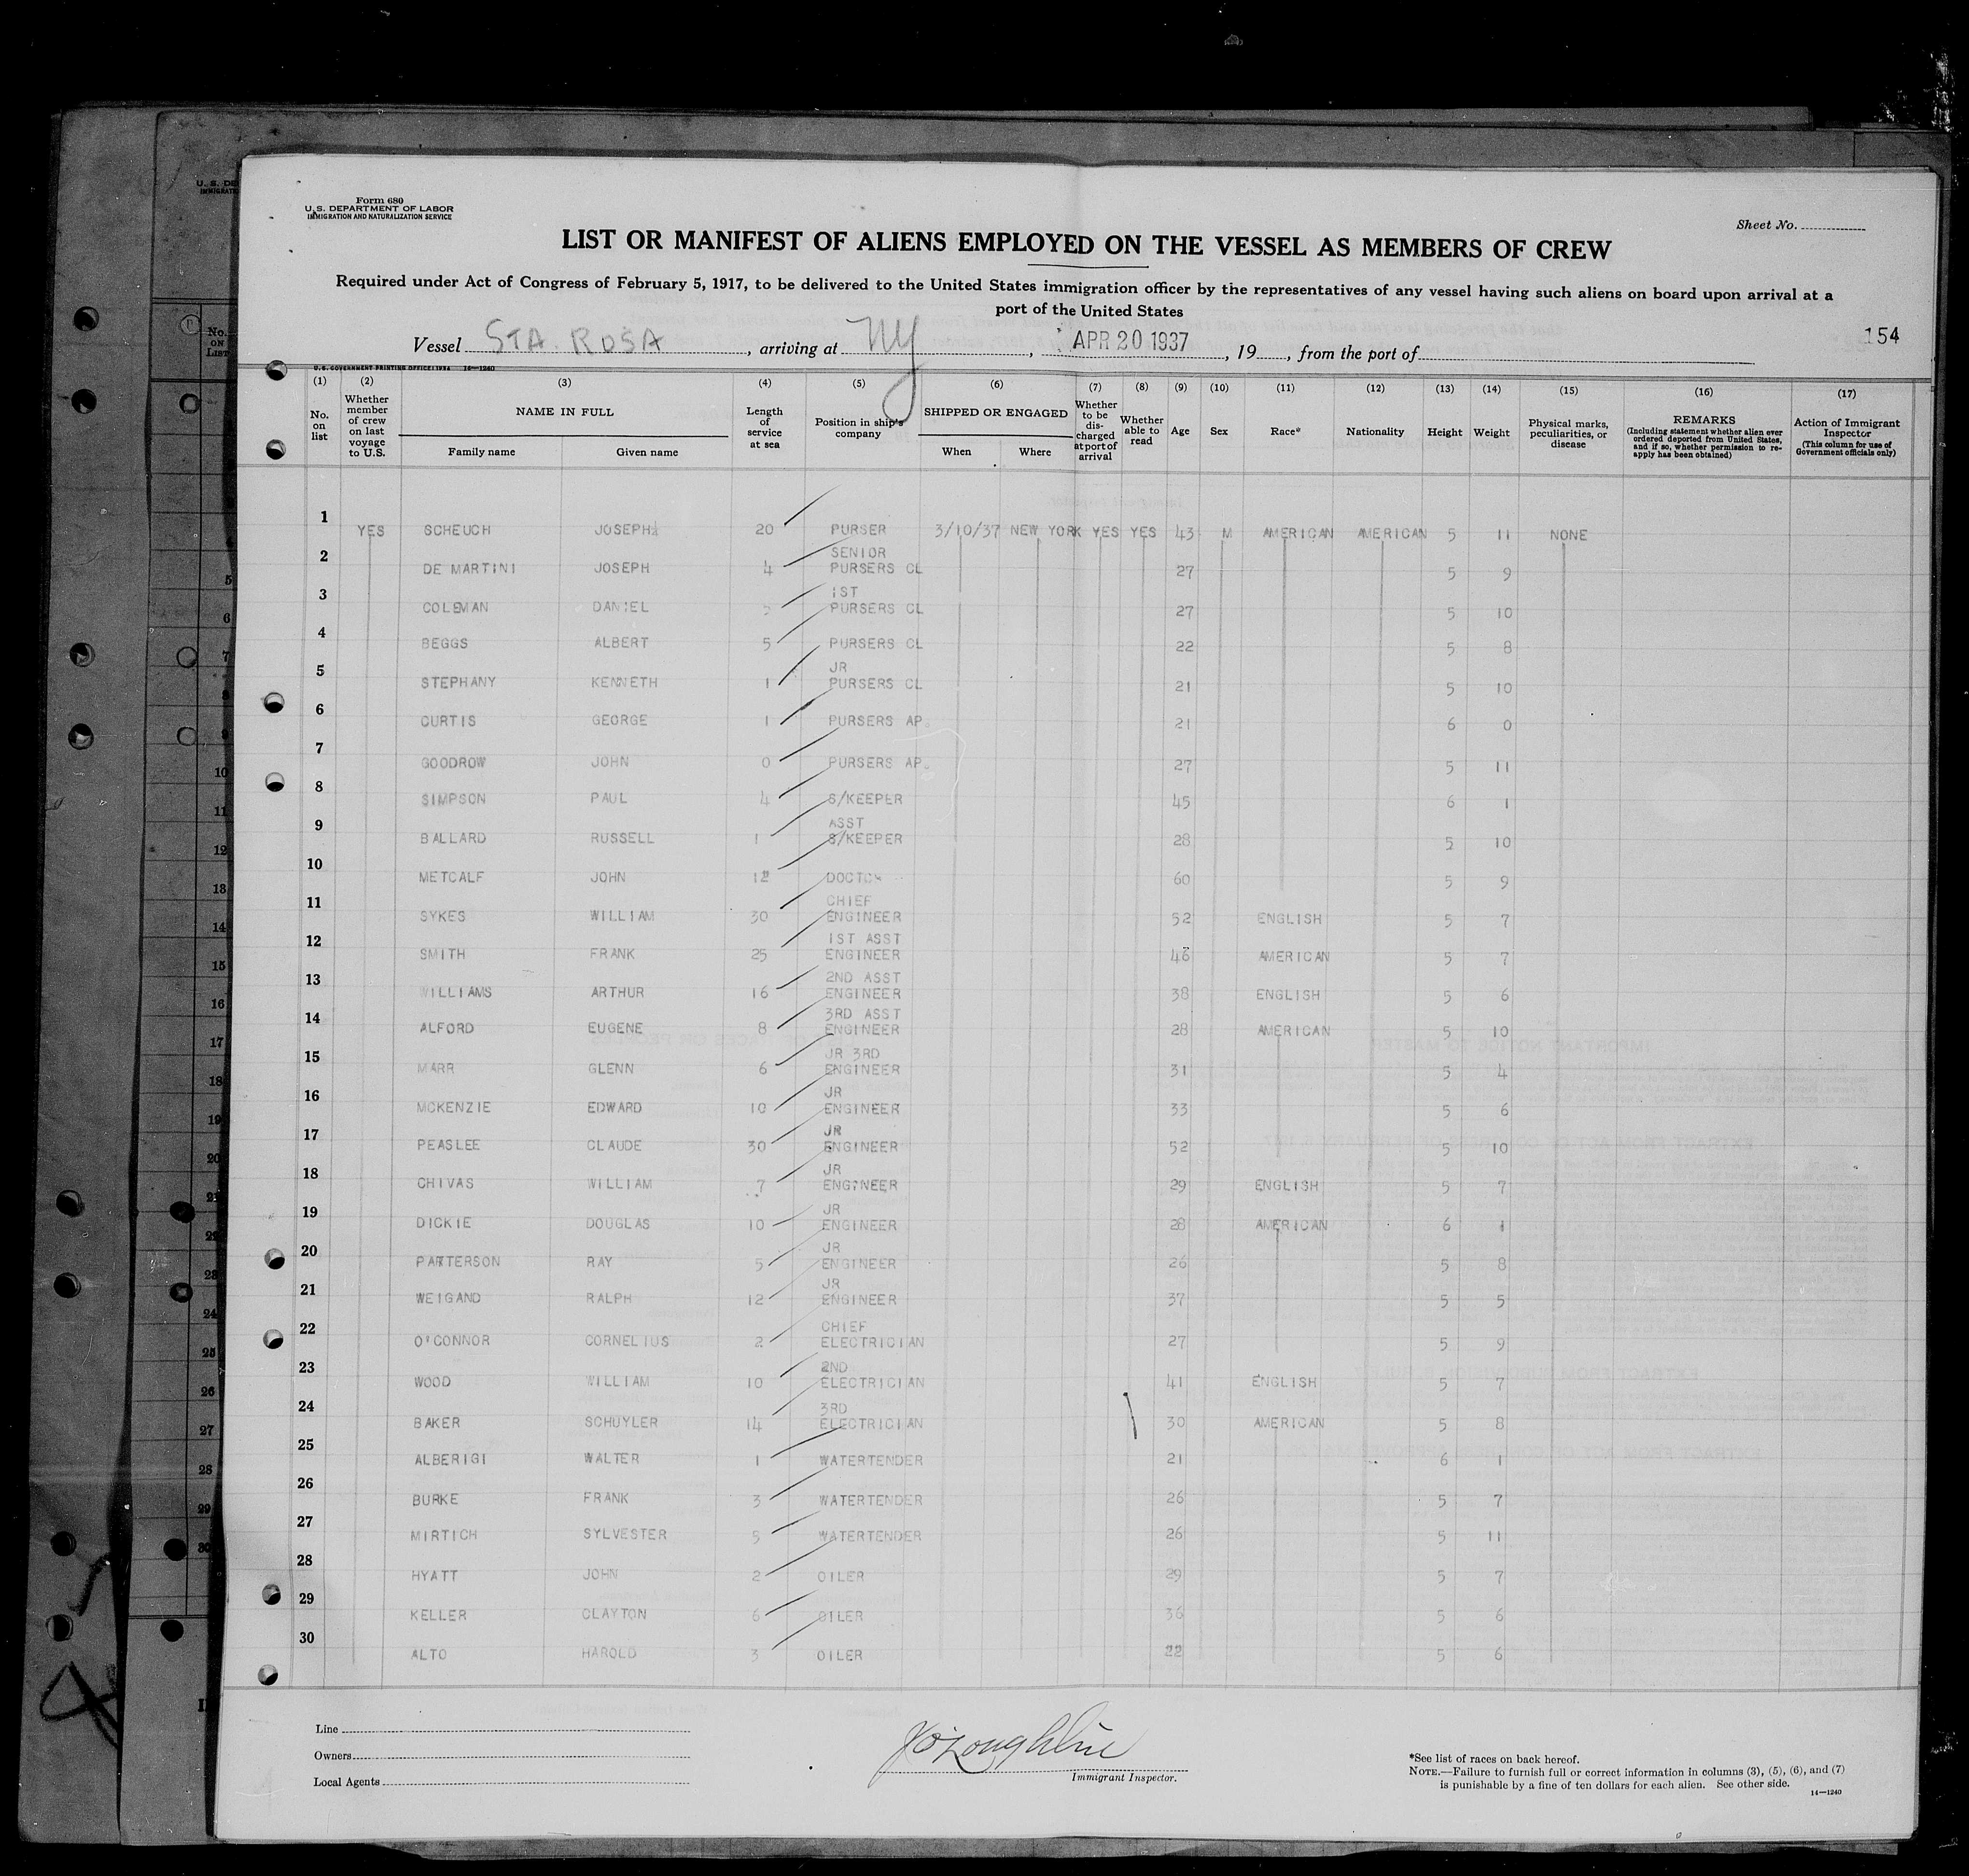 Form 680
U.S. DEPARTMENT OF LABOR
IMMIGRATION AND NATURALIZATION SERVICE
Sheet No.
LIST OR MANIFEST OF ALIENS EMPLOYED ON THE VESSEL AS MEMBERS OF CREW
Required under Act of Congress of February 5, 1917, to be delivered to the United States immigration officer by the representatives of any vessel having such aliens on board upon arrival at a
port of the United States
Vessel STA. ROSA, arriving at NY, APR 20 1937, 19, from the port of
154
U. S. GOVERNMENT PRINTING OFFICE: 1934 14—1240
(1) (2) (3) (4) (5) (6) (7) (8) (9) (10) (11) (12) (13) (14) (15) (16) (17)
No. on list
Whether member of crew on last voyage to U.S.
NAME IN FULL
Family name Given name
Length of service at sea
Position in ship's company
SHIPPED OR ENGAGED
When Where
Whether to be discharged at port of arrival
Whether able to read
Age Sex Race* Nationality Height Weight
Physical marks, peculiarities, or disease
REMARKS
(Including statement whether alien ever ordered deported from United States, and if so, whether permission to reapply has been obtained)
Action of Immigrant Inspector
(This column for use of Government officials only)
1 YES SCHEUCH JOSEPH 20 PURSER 3/10/37 NEW YORK YES YES 43 M AMERICAN AMERICAN 5 11 NONE
2 DE MARTINI JOSEPH 4 SENIOR PURSERS CL 27 5 9
3 COLEMAN DANIEL 1ST PURSERS CL 27 5 10
4 BEGGS ALBERT 5 PURSERS CL 22 5 8
5 STEPHANY KENNETH 1 JR PURSERS CL 21 5 10
6 CURTIS GEORGE 1 PURSERS AP. 21 6 0
7 GOODROW JOHN 0 PURSERS AP. 27 5 11
8 SIMPSON PAUL 4 S/KEEPER 45 6 1
9 BALLARD RUSSELL 1 ASST S/KEEPER 28 5 10
10 METCALF JOHN 12 DOCTOR 60 5 9
11 SYKES WILLIAM 30 CHIEF ENGINEER 52 ENGLISH 5 7
12 SMITH FRANK 25 1ST ASST ENGINEER 46 AMERICAN 5 7
13 WILLIAMS ARTHUR 16 2ND ASST ENGINEER 38 ENGLISH 5 6
14 ALFORD EUGENE 8 3RD ASST ENGINEER 28 AMERICAN 5 10
15 MARR GLENN 6 JR 3RD ENGINEER 31 5 4
16 MCKENZIE EDWARD 10 JR ENGINEER 33 5 6
17 PEASLEE CLAUDE 30 JR ENGINEER 52 5 10
18 CHIVAS WILLIAM 7 JR ENGINEER 29 ENGLISH 5 7
19 DICKIE DOUGLAS 10 JR ENGINEER 28 AMERICAN 6 1
20 PATTERSON RAY 5 JR ENGINEER 26 5 8
21 WEIGAND RALPH 12 JR ENGINEER 37 5 5
22 O'CONNOR CORNELIUS 2 CHIEF ELECTRICIAN 27 5 9
23 WOOD WILLIAM 10 2ND ELECTRICIAN 41 ENGLISH 5 7
24 BAKER SCHUYLER 14 3RD ELECTRICIAN 30 AMERICAN 5 8
25 ALBERIGI WALTER 1 WATERTENDER 21 6 1
26 BURKE FRANK 3 WATERTENDER 26 5 7
27 MIRTICH SYLVESTER 5 WATERTENDER 26 5 11
28 HYATT JOHN 2 OILER 29 5 7
29 KELLER CLAYTON 6 OILER 36 5 6
30 ALTO HAROLD 3 OILER 22 5 6
Line
Owners
Local Agents
Immigrant Inspector.
*See list of races on back hereof.
NOTE.—Failure to furnish full or correct information in columns (3), (5), (6), and (7)
is punishable by a fine of ten dollars for each alien. See other side.
14—1240